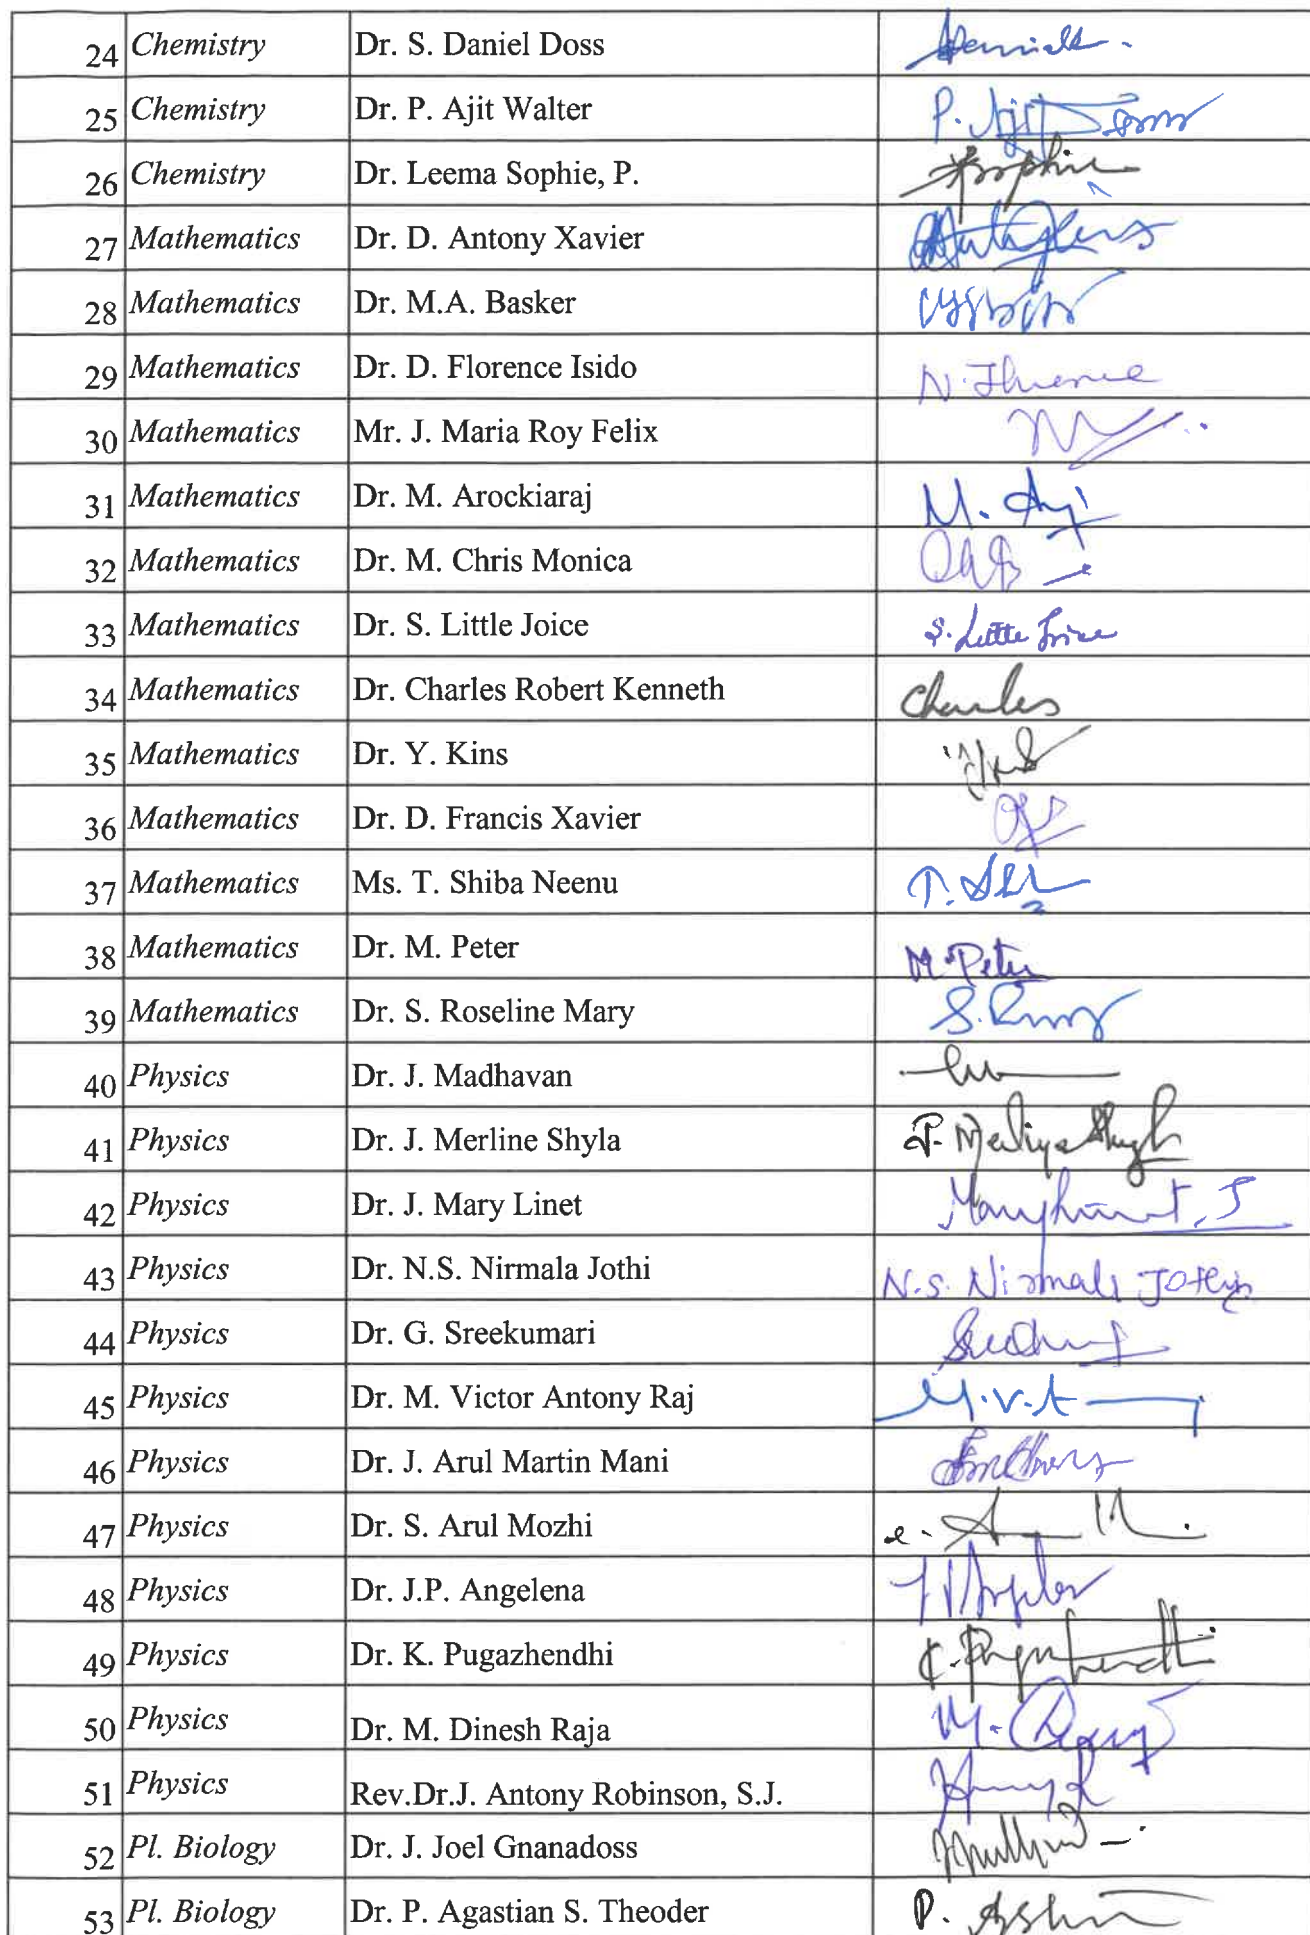 24 Chemistry Dr. S. Daniel Doss
25 Chemistry Dr. P. Ajit Walter P. Ajit
26 Chemistry Dr. Leema Sophie, P. Sophie
27 Mathematics Dr. D. Antony Xavier
28 Mathematics Dr. M.A. Basker
29 Mathematics Dr. D. Florence Isido
30 Mathematics Mr. J. Maria Roy Felix
31 Mathematics Dr. M. Arockiaraj M.
32 Mathematics Dr. M. Chris Monica
33 Mathematics Dr. S. Little Joice S. Little Joice
34 Mathematics Dr. Charles Robert Kenneth Charles
35 Mathematics Dr. Y. Kins
36 Mathematics Dr. D. Francis Xavier
37 Mathematics Ms. T. Shiba Neenu T.
38 Mathematics Dr. M. Peter M. Peter
39 Mathematics Dr. S. Roseline Mary S.
40 Physics Dr. J. Madhavan
41 Physics Dr. J. Merline Shyla
42 Physics Dr. J. Mary Linet
43 Physics Dr. N.S. Nirmala Jothi N.S. Nirmala Jothi
44 Physics Dr. G. Sreekumari
45 Physics Dr. M. Victor Antony Raj M.V.A
46 Physics Dr. J. Arul Martin Mani
47 Physics Dr. S. Arul Mozhi
48 Physics Dr. J.P. Angelena
49 Physics Dr. K. Pugazhendhi K. Pugazhendhi
50 Physics Dr. M. Dinesh Raja M.
51 Physics Rev.Dr.J. Antony Robinson, S.J.
52 Pl. Biology Dr. J. Joel Gnanadoss
53 Pl. Biology Dr. P. Agastian S. Theoder P.